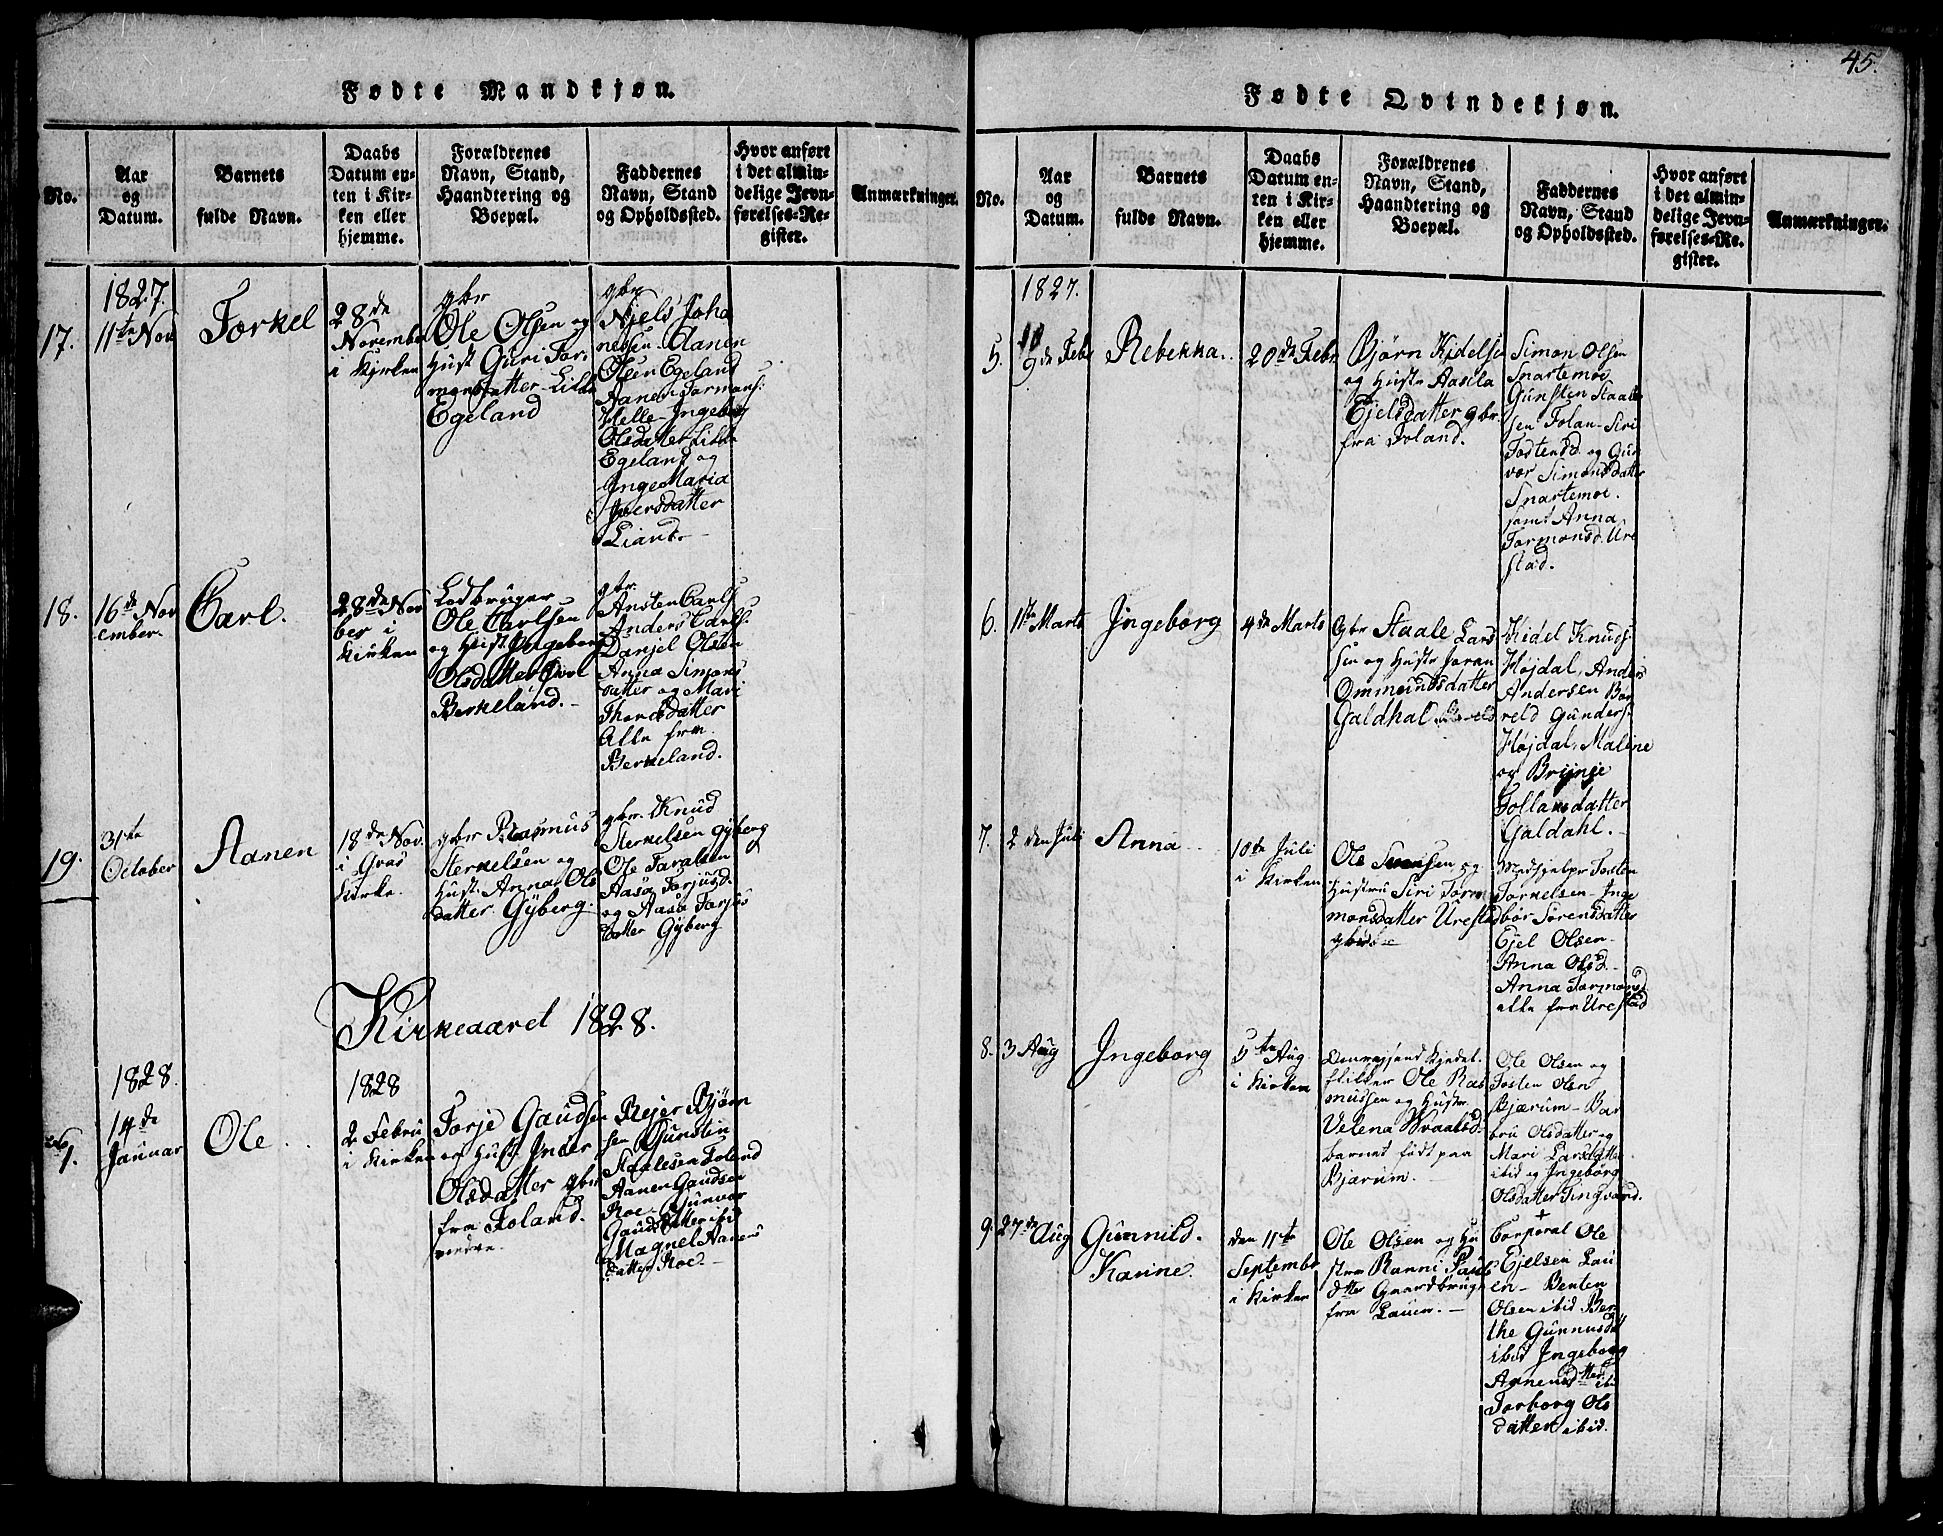 Fødte Mandkjøn.
No.
Aar
og
Datum.
Barnets
fulde Navn.
Daabs
Datum en-
ten i Kir-
ken eller
hjemme.
Forældrenes
Navn, Stand,
Haandtering og
Boepæl.
Faddernes
Navn, Stand
og Opholdssted.
Hvor anført
i det almin-
delige Jevn-
førelses-Re-
gister.
Anmærkninger.
17.
1827.
11te Nov
Torkel
28de
Novembr
i Kirken
gbr
Ole Olsen og
Hust Guri Tor-
mansdatter Lille
Egeland
gbr
Njels Joha
nessen Aanen
Olsen Egeland
Aanen Tormans:
Helle Ingeborg
Olsdatter Lille
Egeland og
Inge Maria
Iversdatter
Liand.
18.
16de Nov
ember.
Carl.
28de Nov
ber i
Kirken
Lodbruger
Ole Carlsen
og Hust Ingeborg
Olsdatter
Berkeland.
gbr.
Ansten Carls
Anders Carls:
Danjel Olsen
Anna Simons
datter og Mari
Thordsdatter
Alle fra
Berkeland.
19.
31te
October
Aanen
18de Nov.
i Qvas
Kirke.
gbr Rasmus
Terkelsen og
Hust. Anna Ols
datter Gyberg.
gbr. Knud
Terkelsen Gyberg
Ole Taralsen
Aasa Torjusd.
og Aasa Torjus
datter Gyberg
Kirkeaaret 1828.
1.
1828.
14de
Januar
Ole
1828
2 Febru
i Kirken
Torje Gaudsen
og Hust. Inder
Olsdatter gbr
fra Foland.
Rejer Bjørn
sen Gunstin
Staalesen Foland
Aanen Gaudsen
Roe. Gunvor
Gaudsdatter ibid
Magnel Aanens
datter Roe.
45.
Fødte Qvindekjøn.
No.
Aar
og
Datum.
Barnets
fulde Navn.
Daabs
Datum en-
ten i Kir-
ken eller
hjemme.
Forældrenes
Navn, Stand,
Haandtering og
Boepæl.
Faddernes
Navn, Stand
og Opholdssted.
Hvor anført
i det almin-
delige Jevn-
førelses-Re-
gister.
Anmærkninger.
5.
1827.
10
9de Febr
Rebekka.
20de Febr
Bjørn Kidelse
og Hustr Aasila
Ejelsdatter gbr.
fra Foland.
Simon Olsen
Snartemoe
Gunsten Staale
sen Folan Siri
Tostensd. og Gun
vor Simonsdatter
Snartemoe.
samt Anna
Tormonsd. Ure
stad.
6.
1te Marts
Ingeborg
4de Marts
Gbr Staale Lars
sen og Hustr Joran
Ommundsdatter
Galdhal
Kidel Knuds:
Højdal, Anders
Andersen Bor
reld Gunders:
Højdal, Maline
og Brijnje
Tollaksdatter
Galdahl.
7.
2den Juli
Anna
10de Juli
i Kirken
Ole Svensen og
Hustru Siri Torm
monsdatter Urestad
Medhjelpr Tosten
Torkelsen Inge
bør Sørensdatter
Ejel Olsen
Anna Olsd.
Anna Tormonsd
alle fra Urestad
8.
3 Aug
Ingeborg
5te Aug
i Kirken
Omrejsend Kjedel-
flikker Ole Ras
mussen og Hustr.
Velena Hraalsd.
barnet født paa
Bjærum.
Ole Olsen og
Tosten Olsn
Bjærum Bar
bru Olsdatter og
Mari Larsdatter
ibid og Ingeborg
Olsdatter Tingvord.
9.
27de Aug
Gunnild.
Karine.
den 11te
Septembr
i Kirken
Ole Olsen og Hu
strue Ranni Pauls
dtter Gaardbrug
fra Lauen.
Corporal Ole
Ejelsen Lau
en Benten
Olsen ibid Ber
the Gunnusdtt
ibid Ingeborg
Aanensdtter ibi
Torborg Ols
datter ibid.